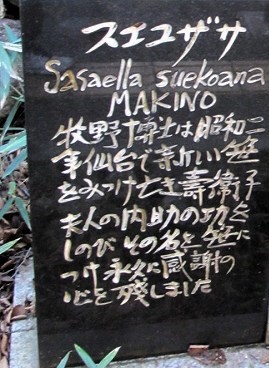 スエユザサ
Sasaella suekoana
MAKINO
牧野博士は昭和二
年仙台で新しい笹
をみつけてき壽衛子
夫人の内助の功を
しのびその名を笹に
つけ永久に感謝の
心を残しました